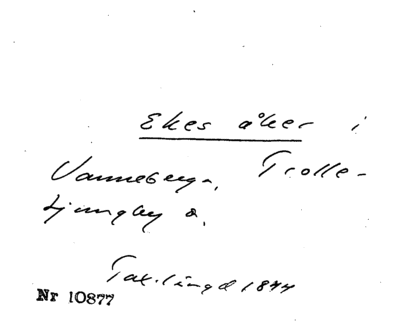 Ekes åker i
Vanneberga, Trolle-
Ljungby s.
Tax.längd 1844
Nr 10877